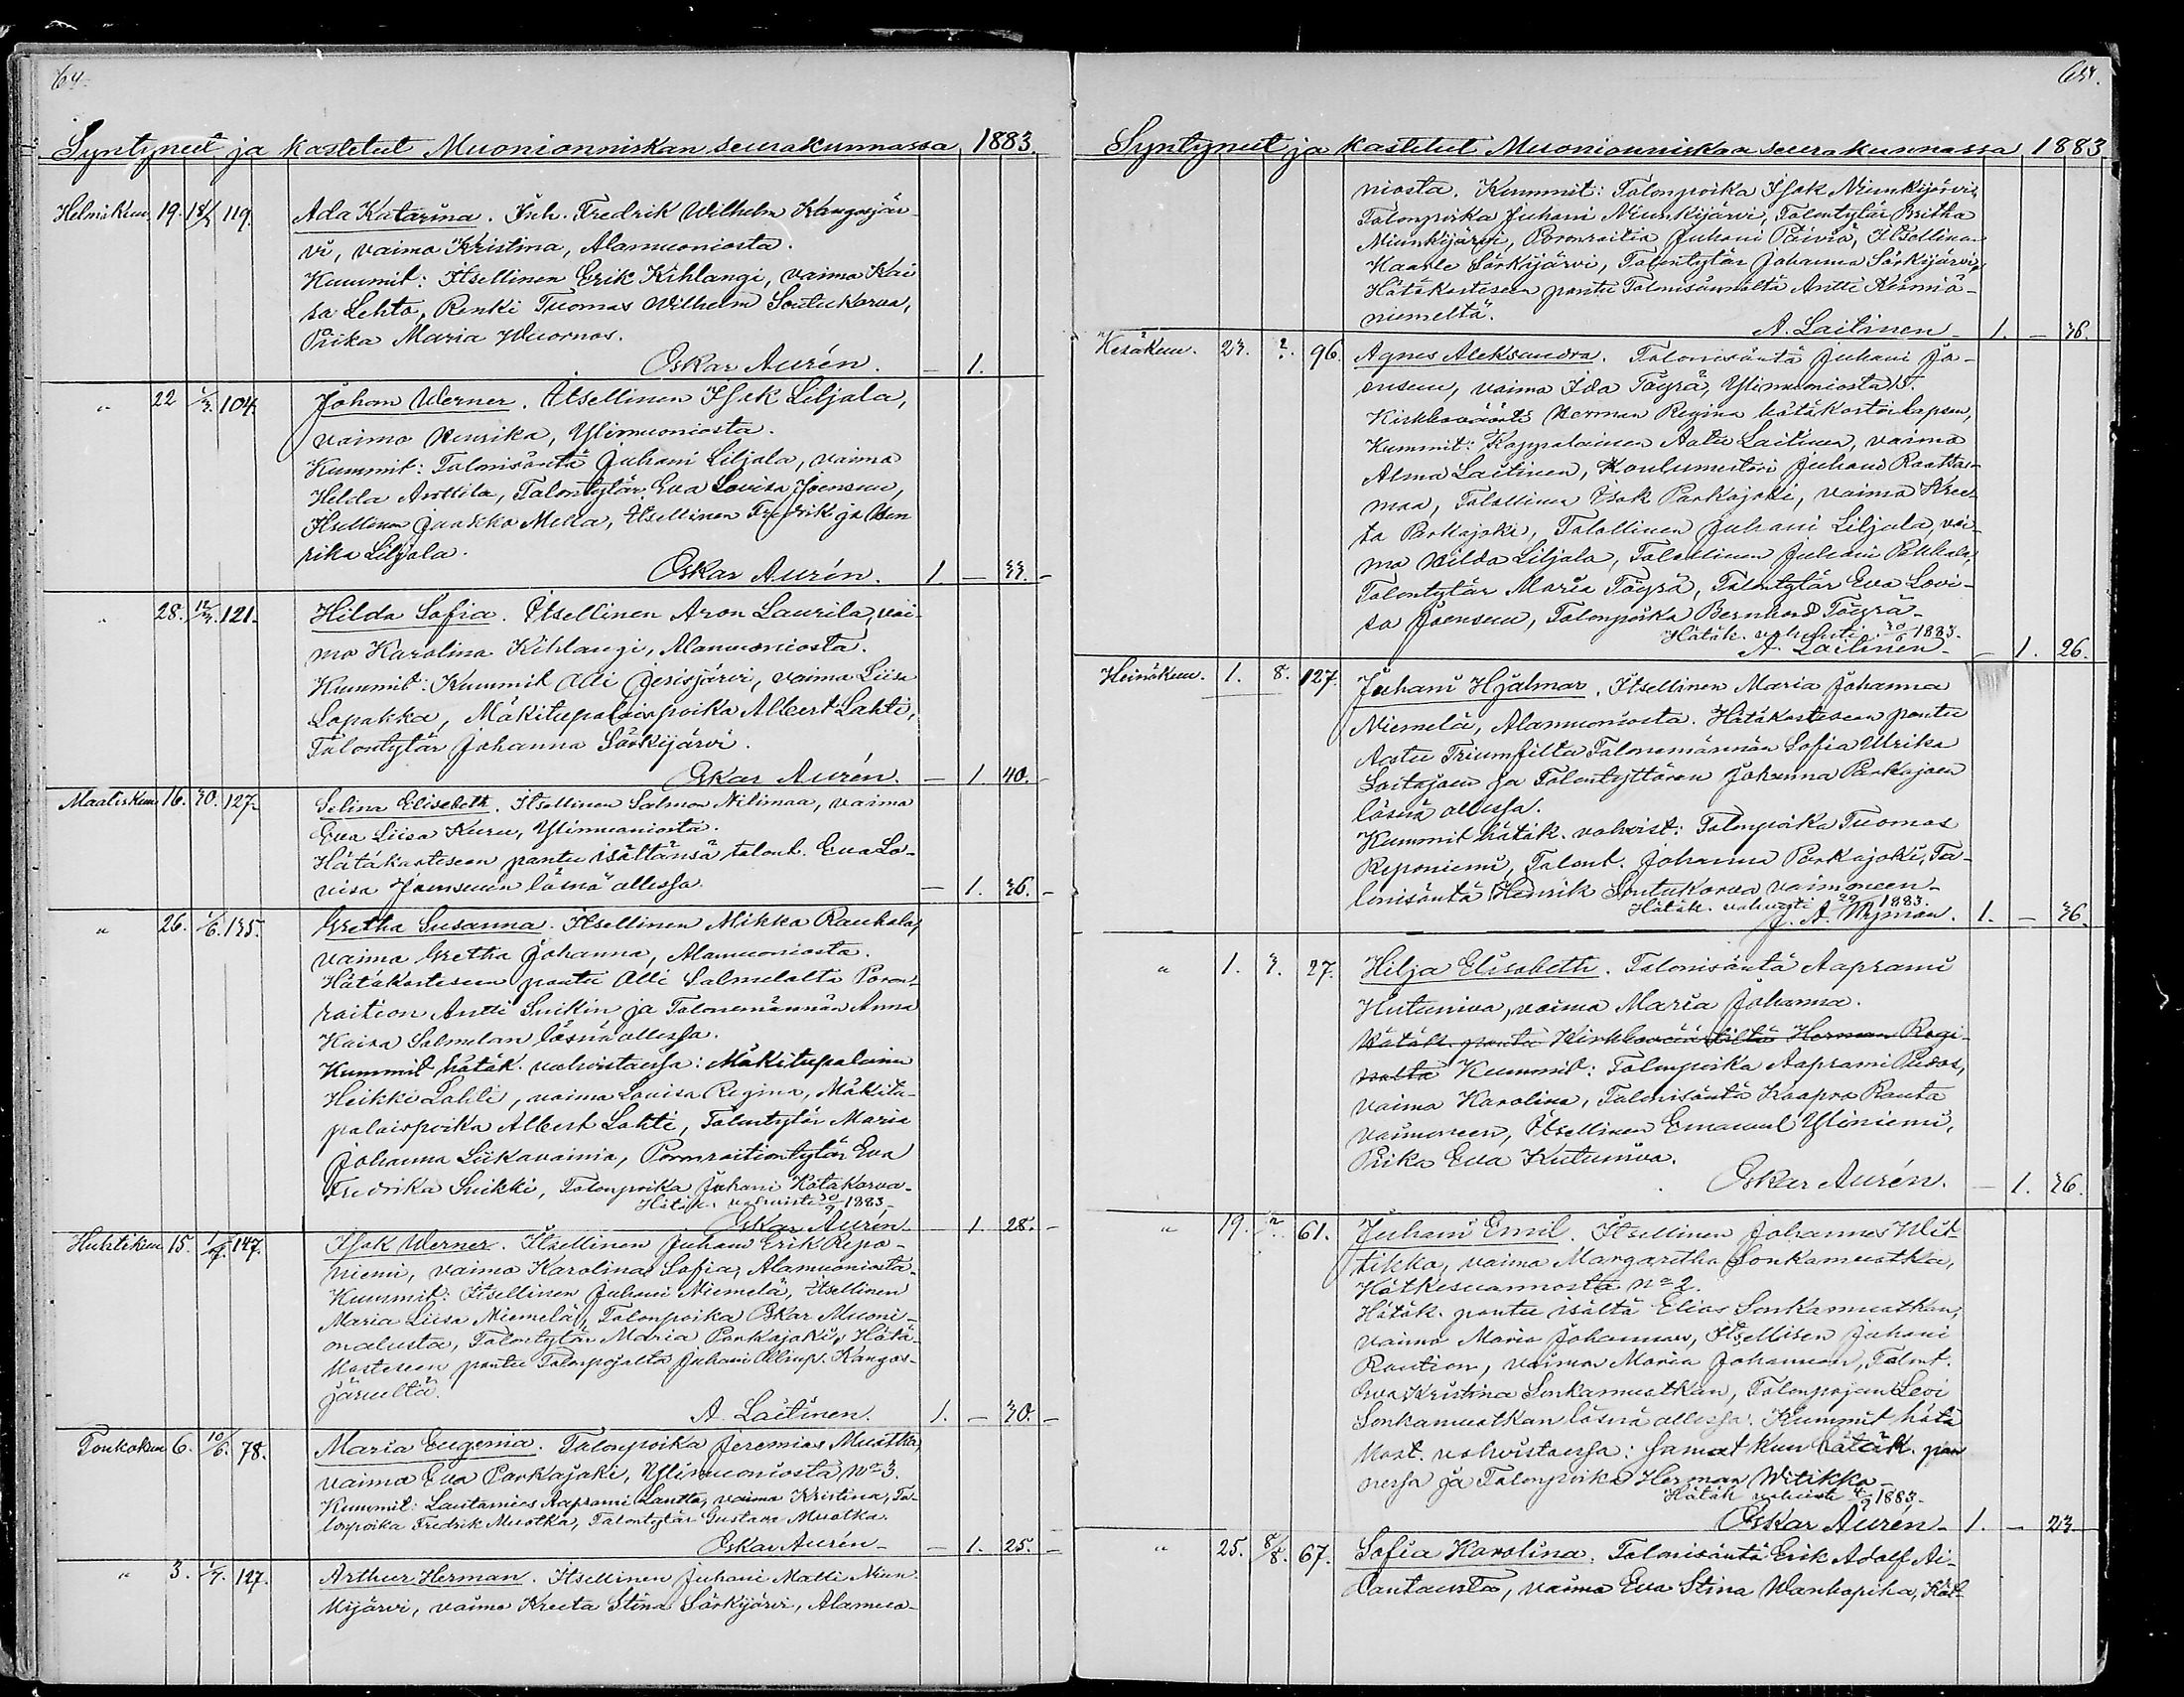 64.
Syntyneet ja kastetut Muonionniskan seurakunnassa 1883.
Helmikuu 19. 18/3 119. Ada Katarina. Inh. Fredrik Wilhelm Kangasjär-
vi, vaimo Kristina, Alamuoniosta.
Kummit: Itsellinen Erik Kihlangi, vaimo Kai
sa Lehto, Renki Tuomas Wilhelm Soutukorva,
Piika Maria Wuornos.
Oskar Aurén. — 1.
" 22 1/3. 104. Johan Werner. Itsellinen Isak Liljala,
vaimo Henrika, Ylimuoniosta.
Kummit: Talonisäntä Juhani Liljala, vaimo
Hilda Anttila, Talontytär Eva Lovisa Joensuu,
Itsellinen Jaakko Mella, Itsellinen Fredrik ja Hen
rika Liljala.
Oskar Aurén. 1. — 33. —
" 28. 12/3. 121. Hilda Sofia. Itsellinen Aron Laurila, vai-
mo Karolina Kihlangi, Alamuoniosta.
Kummit: Kummit Olli Jerisjärvi, vaimo Liisa
Lapakka, Mäkitupalaispoika Albert Lahti,
Talontytär Johanna Särkijärvi.
Oskar Aurén. — 1. 40. —
Maaliskuu 16. 30. 127. Selina Elisabeth. Itsellinen Salmon Niliman, vaimo
Eva Liisa Kuru, Ylimuoniosta.
Hätäkasteseen pantu isältänsä talont. Eva Lo-
visa Joensuun läsnä ollessa. — 1. 36. —
" 26. 1/6. 135. Gretha Susanna. Itsellinen Mikko Rauhala,
vaimo Gretha Johanna, Alamuoniosta.
Hätäkasteseen pantu Olli Salmelalta Poron-
raition Antti Suikin ja Talonemännän Anna
Kaisa Salmelan läsnä ollessa.
Kummit hätäk. vahvistaessa: Mäkitupalainen
Heikki Lahti, vaimo Lovisa Regina, Mäkitu-
palaispoika Albert Lahti, Talontytär Maria
Johanna Liikavainio, Poronraitiontytär Eva
Fredrika Suikki, Talonpoika Juhani Kätäkorva.
Hätäk. vahvisti 30/9 1883.
Oskar Aurén. 1. 28. —
Huhtikuu 15. 147. Isak Werner. Itsellinen Juhani Erik Repo-
niemi, vaimo Karolina Sofia, Alamuoniosta.
Kummit: Itsellinen Juhani Niemelä, Itsellinen
Maria Liisa Niemelä, Talonpoika Oskar Muoni-
onalusta, Talontytär Maria Parkajoki, Hätä-
kasteseen pantu Talonpojalta Juhani Kangos-
järveltä.
A. Laitinen. 1. — 30. —
Toukokuu 6. 10/6. 78. Maria Eugenia. Talonpoika Jeremias Muotka,
vaimo Eva Parkajoki, Ylimuoniosta, No 3.
Kummit: Lautamies Aaprami Lantto, vaimo Kristina, Ta-
lonpoika Fredrik Muotka, Talontytär Gustava Muotka.
Oskar Aurén. — 1. 25. —
" 3. 1/7. 127. Arthur Herman. Itsellinen Juhani Matti Niun-
kijärvi, vaimo Kreeta Stina Särkijärvi, Alamuo-
65.
Syntyneet ja kastetut Muonionniskan seurakunnassa 1883
niosta. Kummit: Talonpoika Isak Niunkijärvi,
Talonpoika Juhani Niunkijärvi, Talontytär Britha
Niunkijärvi, Poronraitio Juhani Päiviö, Itsellinen
Kaarle Särkijärvi, Talontytär Johanna Särkijärvi,
Hätäkasteseen pantu Talonisännältä Antti Keimiö-
niemeltä.
A. Laitinen. 1. — 36.
Kesäkuu. 23. ?. 96. Agnes Aleksandra. Talonisäntä Juhani Jo-
ensuu, vaimo Ida Töyrä, Ylimuoniosta 15.
Kirkkoväärti Herman Regina hätäkastoi lapsen,
Kummit: Kappalainen Aatu Laitinen, vaimo
Alma Laitinen, Koulumestari Juhani Raattas-
maa, Talollinen Isak Parkajoki, vaimo Kree-
ta Parkajoki, Talollinen Juhani Liljala, vai-
mo Hilda Liljala, Talollinen Juhani Pekkala,
Talontytär Maria Töyrä, Talontytär Eva Lovi-
sa Joensuu, Talonpoika Bernhard Töyrä.
Hätäk. vahvisti 30/6 1883.
A. Laitinen. — 1. 26.
Heinäkuu. 1. 8. 127. Juhani Hjalmar. Itsellinen Maria Johanna
Niemelä, Alamuoniosta. Hätäkasteseen pantu
Aatu Triumfilta Talonemännän Sofia Ulrika
Soitajoen ja Talontyttären Johanna Parkajoen
läsnä ollessa.
Kummit hätäk. vahvist: Talonpoika Tuomas
Reponiemi, Talont. Johanna Parkajoki, Ta-
lonisäntä Hendrik Soutukorva vaimoneen.
Hätäk. vahvisti 1883.
J. A. Nyman. 1. — 36.
" 1. 3. 27. Hilja Elisabeth. Talonisäntä Aaprami
Kutuniva, vaimo Maria Johanna.
Hätäk. pantu Kirkkoväärtiltä Herman Regi-
nalta Kummit: Talonpoika Aaprami Pidos,
vaimo Karolina, Talonisäntä Kaapro Rauta
vaimoneen, Itsellinen Emanuel Yliniemi,
Piika Eva Kutuniva.
Oskar Aurén. — 1. 36.
" 19. 61. Juhani Emil. Itsellinen Johannes Wit-
tikka, vaimo Margaretha Sonkamuotka,
Kätkesuannosta No 2.
Hätäk. pantu isältä Elias Sonkamuotkan,
vaimo Maria Johannan, Itsellisen Juhani
Raution, vaimon Maria Johannan, Talont.
Eva Kristina Sonkamuotkan, Talonpojan Levi
Sonkamuotkan läsnä ollessa. Kummit hätä
kast. vahvistaessa: samat kun hätäk. pan
nessa ja Talonpoika Herman Witikka.
Hätäk. vahvisti 4/9 1883.
Oskar Aurén. 1. — 23.
" 25. 8/8. 67. Sofia Karolina. Talonisäntä Erik Adolf Ai-
lantausta, vaimo Eva Stina Wanhapiha, Kät-